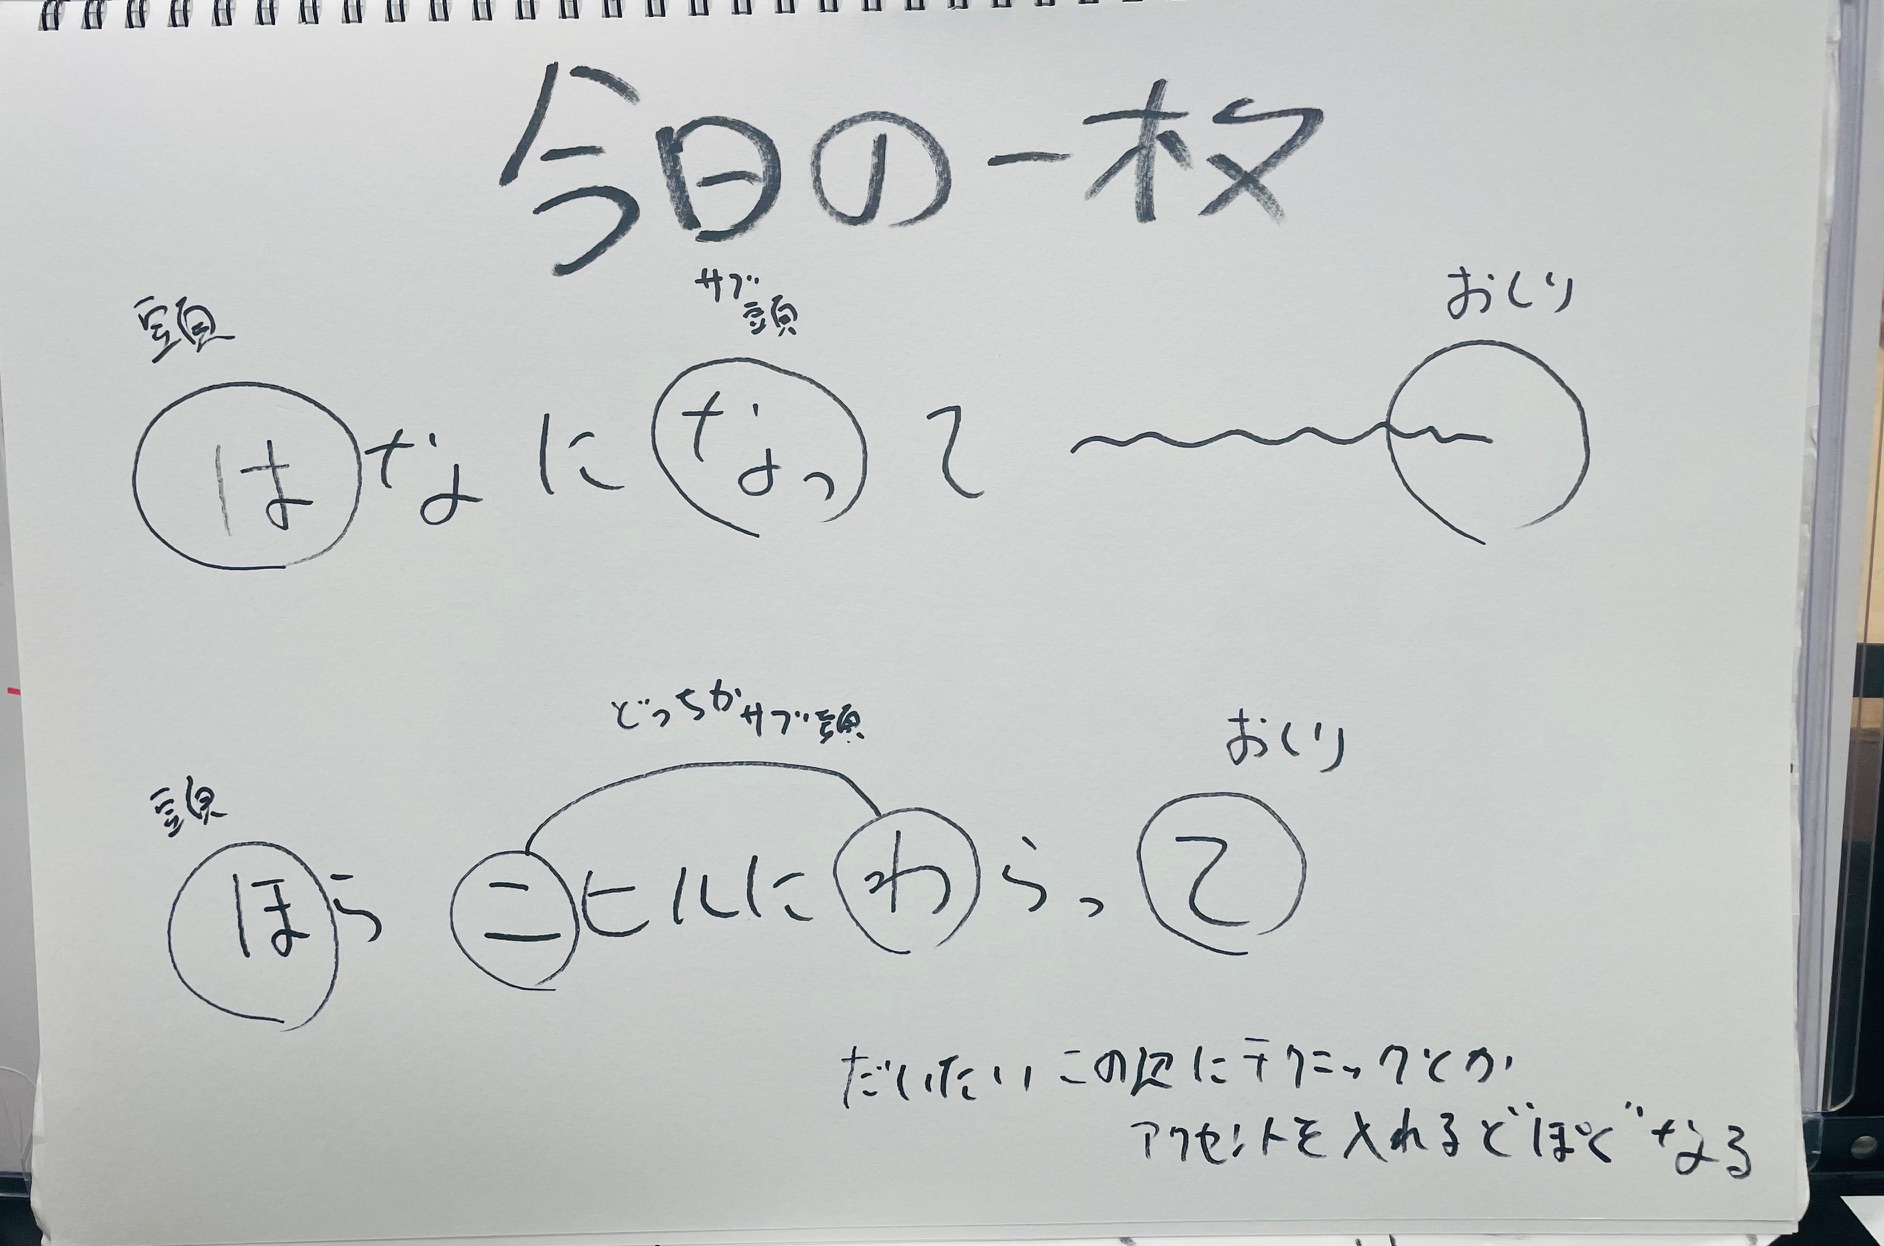 今日の一枚
頭 サブ頭 おしり
はなになって
どっちかサブ頭 おしり
頭
ほら ニヒルにわらって
だいたいこの辺にテクニックとか
アクセントを入れると"ぽく"なる